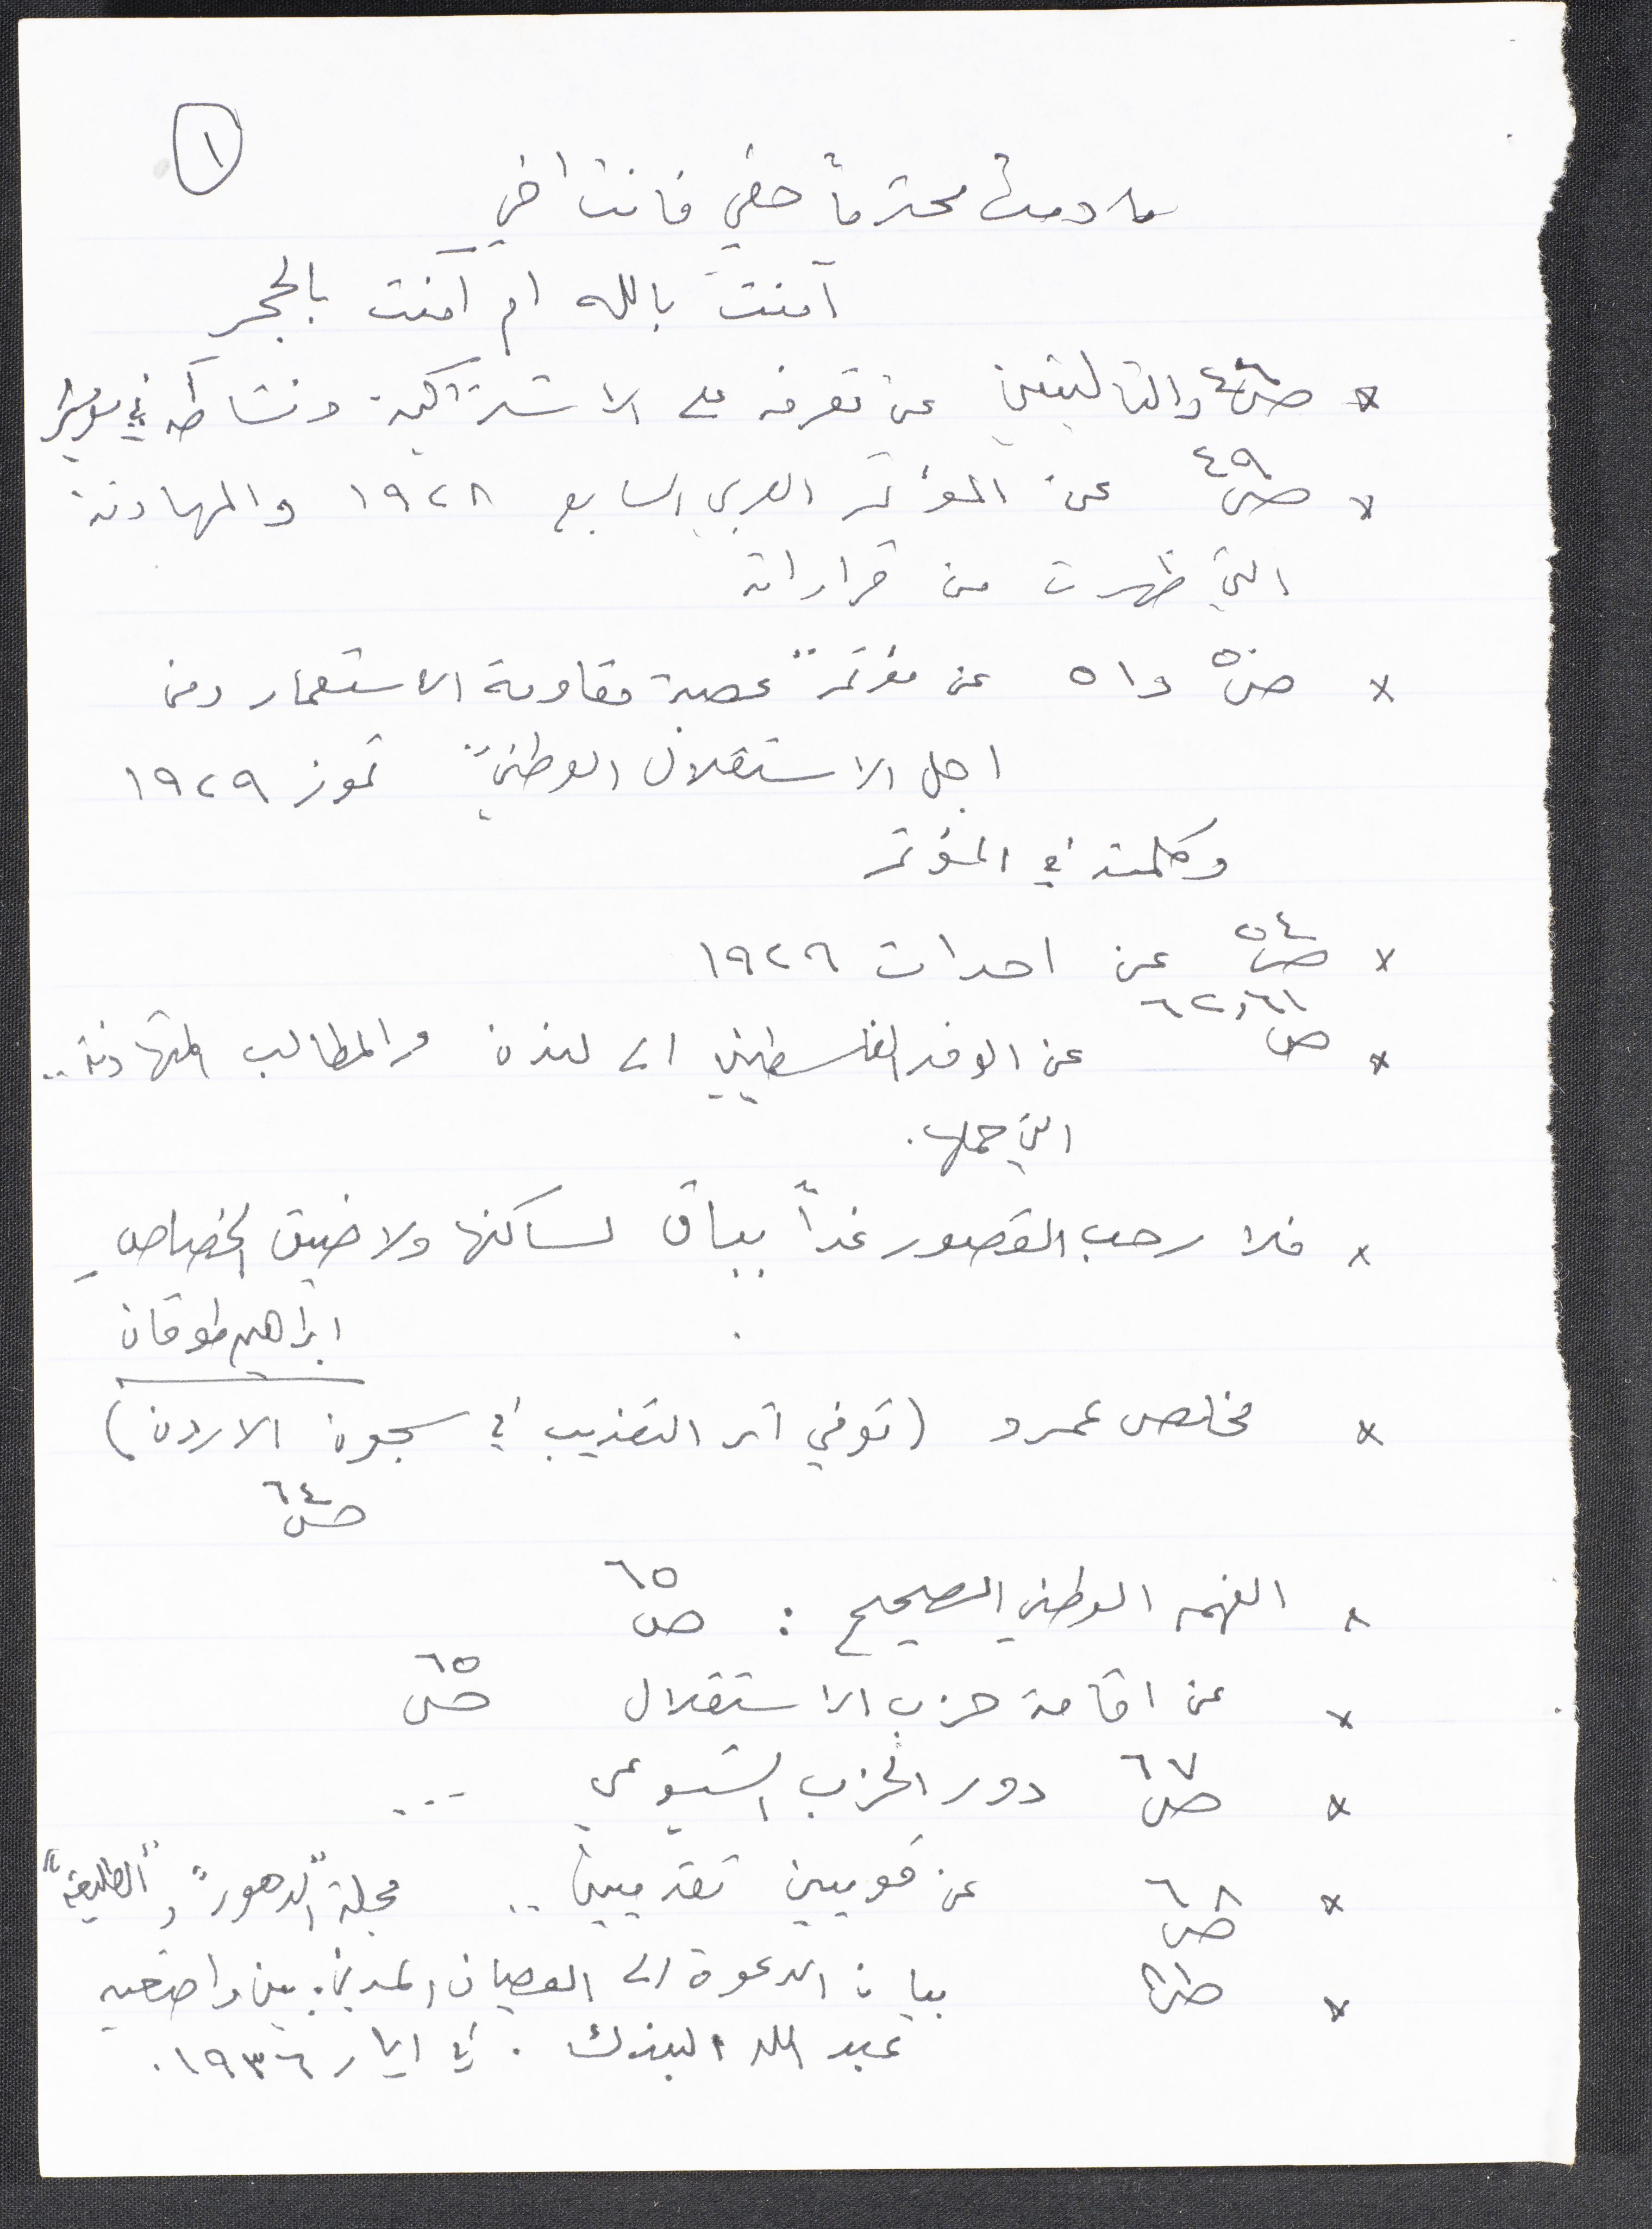 ١
ما دمت محترماً حقي فانت اخي
آمنتَ بالله ام آمنت بالحجر
* ص٤٦ والتاليتين عن تعرفه على الاشتراكية ونشاطه في
* ص٤٩ عن المؤتمر العربي السابع ١٩٢٨ والمهادنة
التي ظهرت من قراراته
* ص٥٠ و٥١ عن مؤتمر "عصبة مقاومة الاستعمار ومن
اجل الاستقلال الوطني" تموز ١٩٢٩
وكلمته في المؤتمر
* ص٥٤ عن احداث ١٩٢٩
* ص٦١، ٦٢ عن الوفد الفلسطيني الى لندن والمطالب المتهادنة..
التي حملها.
* فلا رحب القصور غداً بباق لساكنها ولا ضيق الخصاصِ
ابراهيم طوقان
* مخلص عمرو (توفي اثر التعذيب في سجون الاردن)
ص٦٤
* الفهم الوطني الصحيح : ص٦٥
* عن اقامة حزب الاستقلال ص٦٥
* ص٦٧ دور الحزب الشيوعي ...
* ص٦٨ عن قوميين تقدميين .. مجلة "الدهور" و "الطليعة"
* بيان الدعوة الى العصيان المدني. بين واضعيه
عبد الله البندك . في ايار ١٩٣٦.